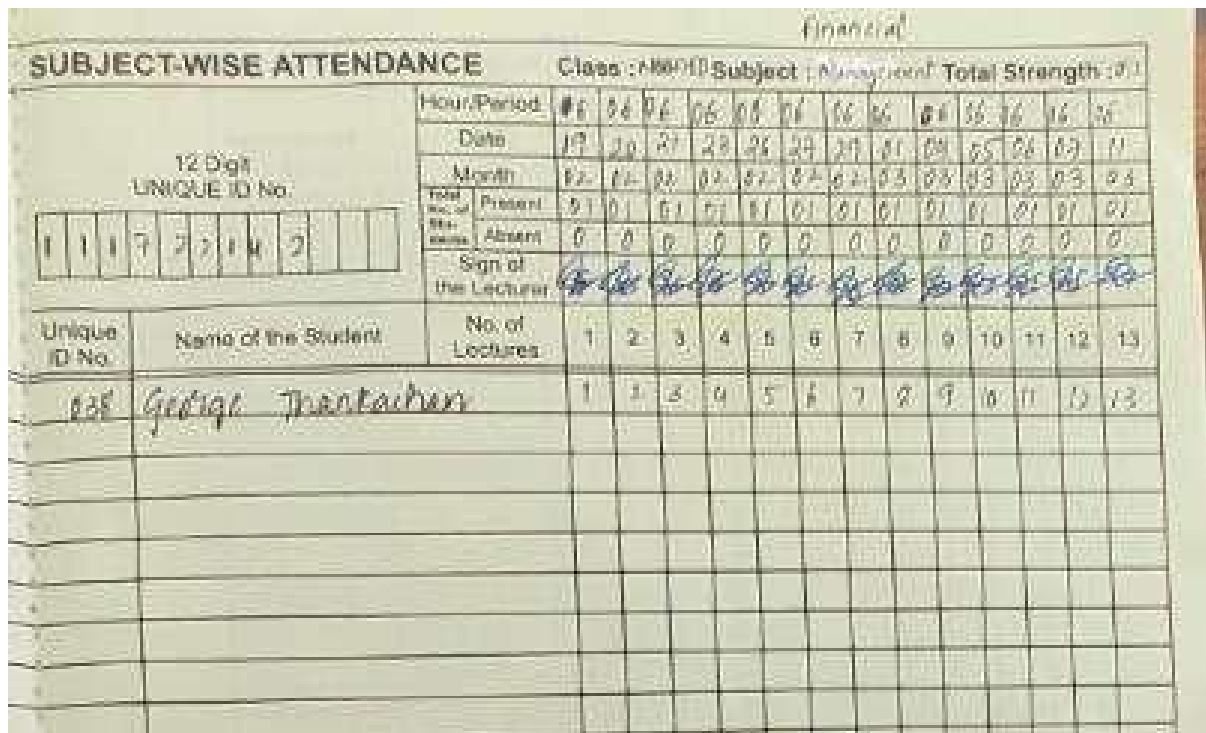 Financial
SUBJECT-WISE ATTENDANCE Class : Subject : Management Total Strength : 01
Hour/Period 06 06 06 06 06 06 06 06 06 06 06 06 06
Date 19 20 21 23 26 27 29 01 04 05 06 07 11
12 Digit
UNIQUE ID No.
Month 02 02 02 02 02 02 02 03 03 03 03 03 03
Total No. of Students Present 01 01 01 01 01 01 01 01 01 01 01 01 01
Absent 0 0 0 0 0 0 0 0 0 0 0 0 0
Sign of
the Lecturer
Unique
ID No. Name of the Student No. of
Lectures 1 2 3 4 5 6 7 8 9 10 11 12 13
038 George Thankachan 1 2 3 4 5 6 7 8 9 10 11 12 13